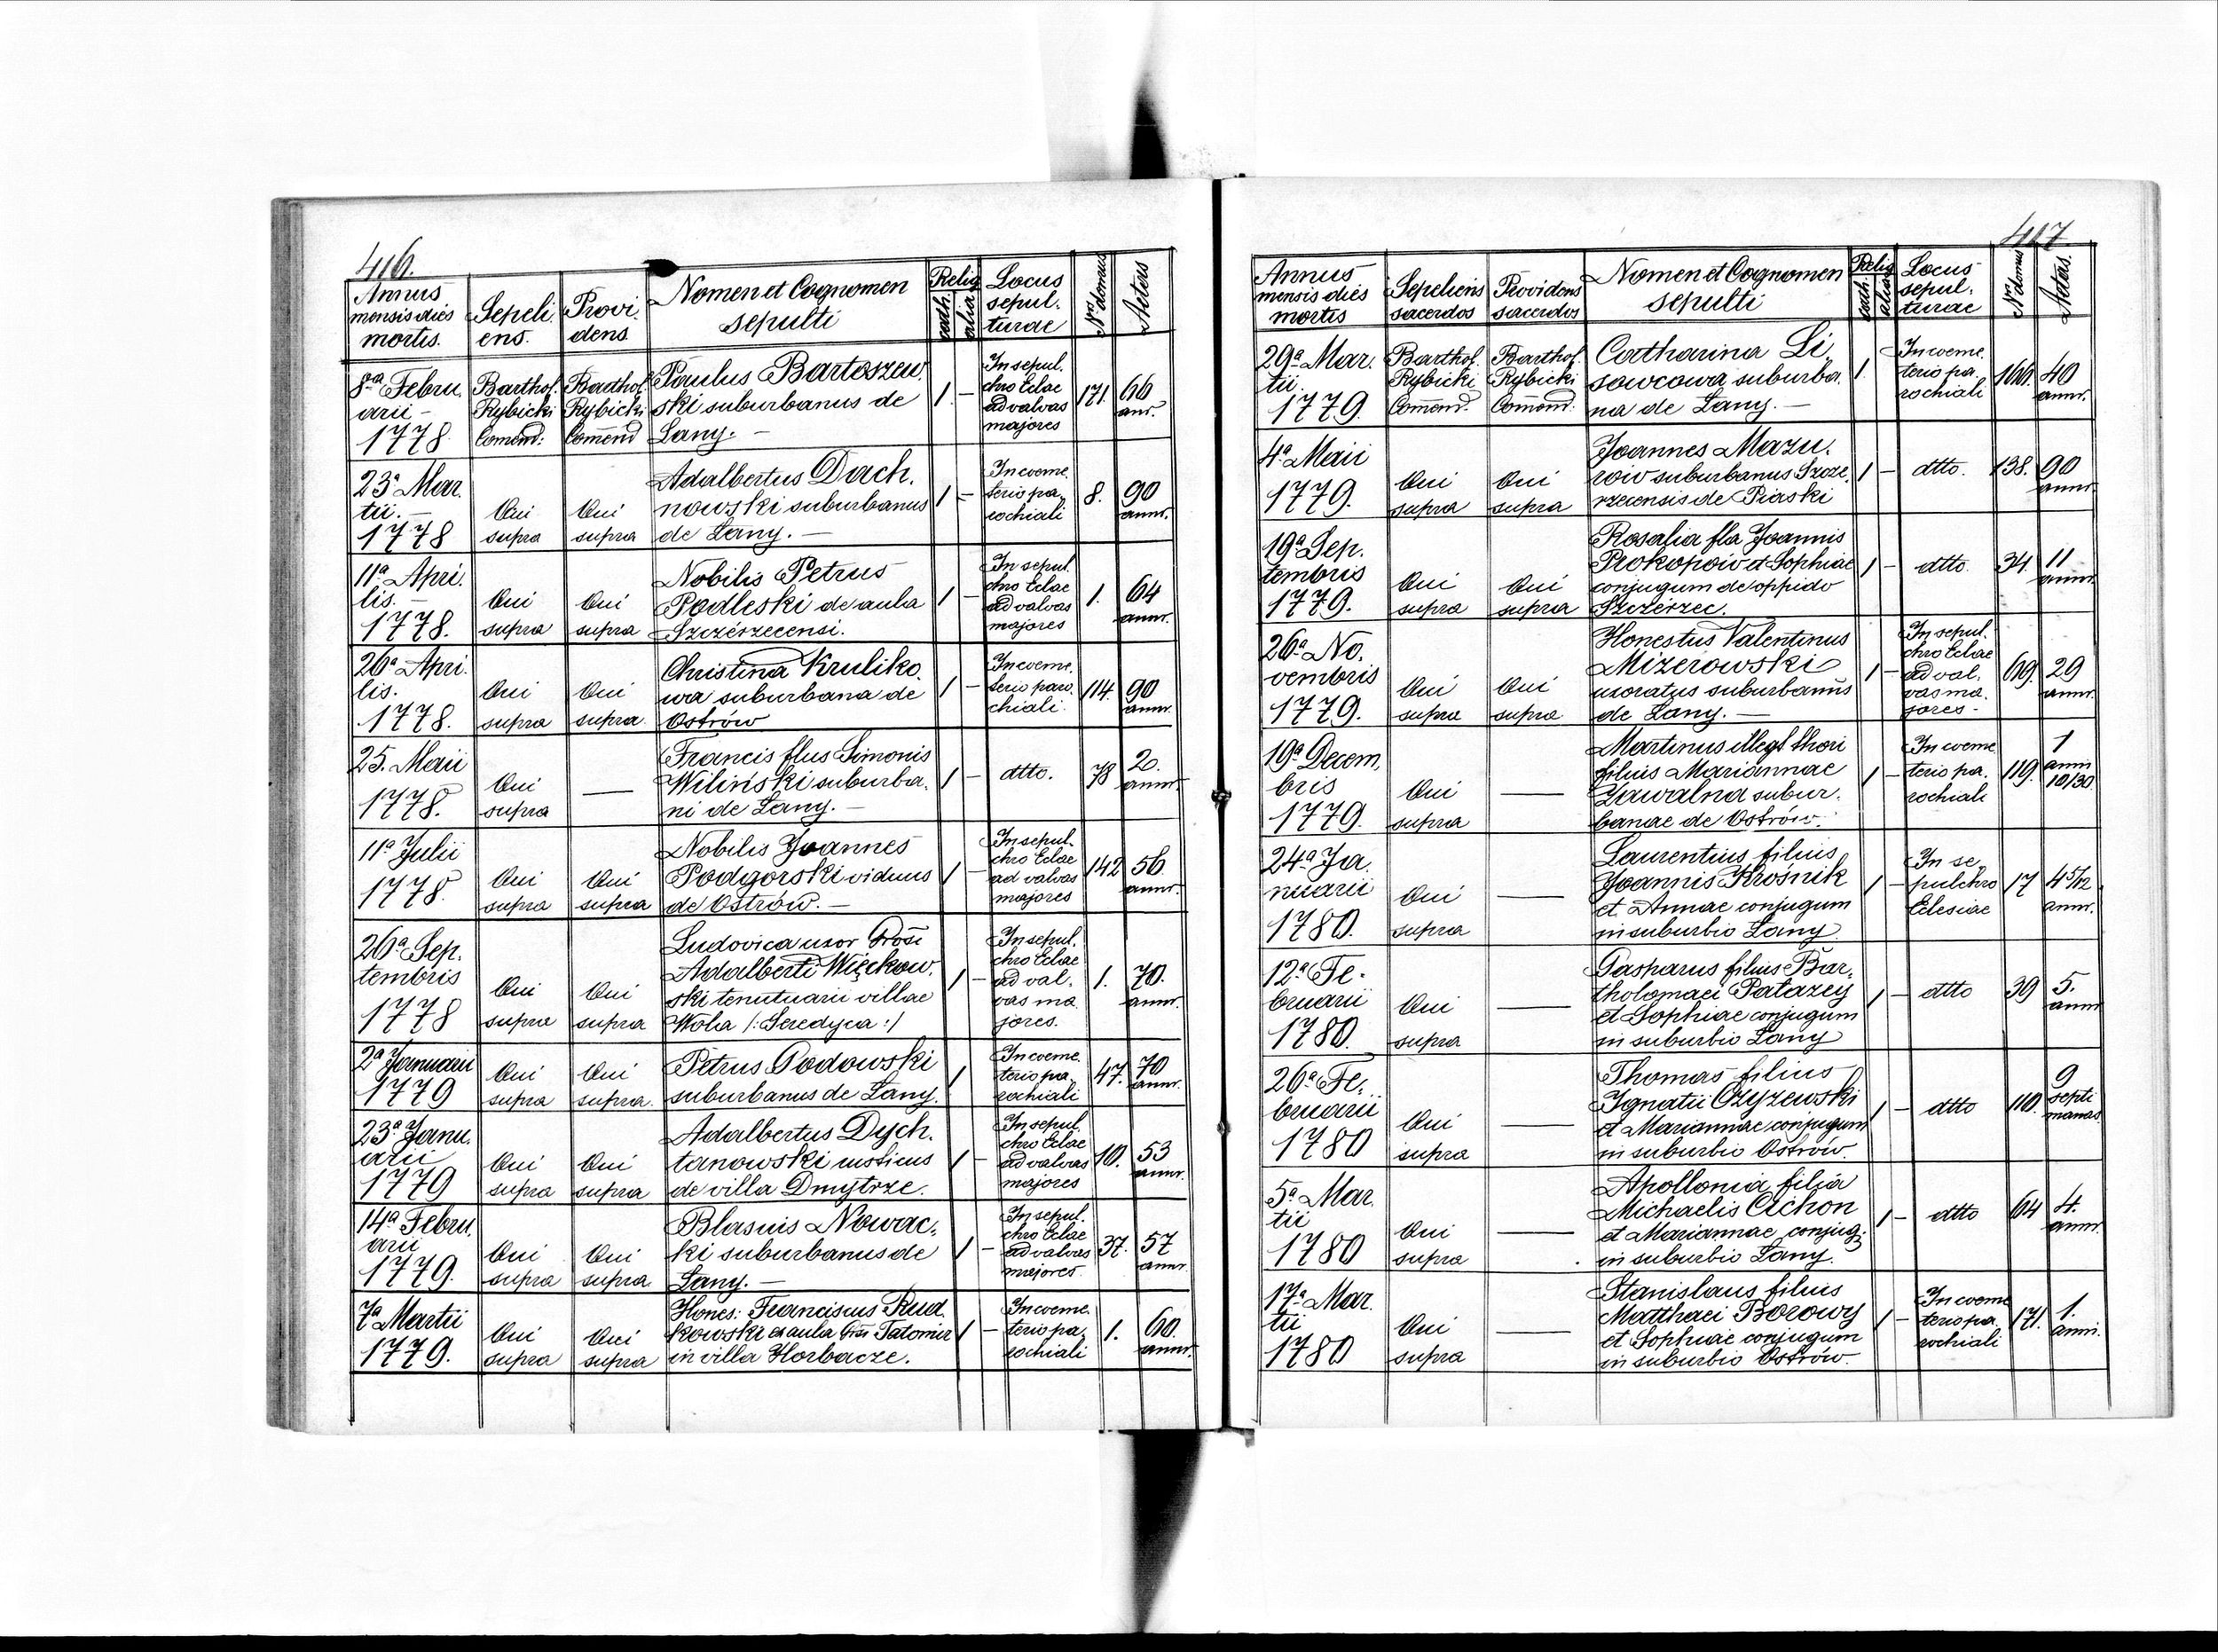 416.
Annus mensis dies mortis. Sepeli ens. Provi dens. Nomen et Cognomen sepulti Relig. cath. alia Locus sepul. turae Nrus domus Aetas
8va Febru arii 1778 Barthol. Rybicki Comend: Barthol. Rybicki Comend Paulus Bartoszew. ski suburbanus de Lany. — 1 – In sepul. chro Eclae ad valvas majores 171. 66 annr.
23a Mar. tii. — 1778 Qui supra Qui supra Adalbertus Dach. nowski suburbanus de Lany. — 1 – In coeme. terio pa. rochiali 8. 90 annr.
11a Apri. lis. — 1778. Qui supra Qui supra Nobilis Petrus Podleski de aula Szczérzecensi. 1 – In sepul. chro Eclae ad valvas majores 1. 64 annr.
26a Apri. lis. 1778. Qui supra Qui supra. Christina Kruliko. wa suburbana de Ostrów 1 – In coeme. terio paro. chiali. 114. 90 annr.
25. Maii 1778. Qui supra — Francis flus Simonis Wiliński suburba. ni de Lany. — 1 – dtto. 78 2. annr.
11a Julii 1778. Qui supra Qui supra Nobilis Joannes Podgorski viduus de Ostrów. — 1 – In sepul. chro Eclae ad valvas majores 142 56 annr.
26a Sep. tembris 1778 Qui supra Qui supra Ludovica uxor Adalberti Więckow. ski tenutuarii villae Wola /: Seredyca :/ 1 – In sepul. chro Eclae ad val. vas ma jores. 1. 70. annr.
2a Januarii 1779 Qui supra Qui supra. Petrus Podowski suburbanus de Lany. 1 In coeme. terio pa. rochiali 47. 70 annr.
23a Janu. arii 1779 Qui supra Qui supra Adalbertus Dych. tanowski rusticus de villa Dmytrze. 1 – In sepul. chro Eclae ad valvas majores 10. 53 annr.
14a Febru. arii 1779. Qui supra Qui supra Blasius Nowac. ki suburbanus de Lany. — 1 – In sepul. chro Eclae ad valvas majores 37. 57 annr.
7a Martii 1779. Qui supra Qui supra Hones: Franciscus Rud. kowski ex aula Tatomir in villa Horbacze. 1 – In coeme. terio pa. rochiali 1. 60. annr.
417
Annus mensis dies mortis Sepeliens sacerdos Providens sacerdos Nomen et Cognomen sepulti Relig cath. alia Locus sepul. turae Nrus domus Aetas.
29a Mar. tii. 1779 Barthol. Rybicki Comend. Barthol. Rybicki Comend. Catharina Li, sowcowa suburba. na de Lany. — 1. In coeme. terio pa. rochiali 166. 40 annr.
4a Maii 1779. Qui supra Qui supra Joannes Mazu. rów suburbanus Szcze. rzecensis de Piaski 1 – dtto. 138. 90 annr.
19a Sep. tembris 1779. Qui supra Qui supra Rosalia fla Joannis Prokopoiv et Sophiae conjugum de oppido Szczérzec. 1 – dtto. 34. 11 annr.
26a No. vembris 1779. Qui supra Qui supra Honestus Valentinus Mizerowski uxoratus suburbanus de Lany. — 1 – In sepul. chro Eclae ad val. vas ma. jores – 69. 29 annr.
19a Decem. bris 1779. Qui supra — Martinus illegt thori filius Mariannae Zawalna subur. banae de Ostrów. 1 – In coeme terio pa. rochiali 119. 1 anni 10/30
24a Ja. nuarii 1780. Qui supra — Laurentius filius Joannis Krośnik et Annae conjugum in suburbio Lany 1 – In se. pulchro Eclesiae 17 4 5/12 annr.
12a Fe. bruarii 1780. Qui supra — Gasparus filius Bar. tholomaei Patazey et Sophiae conjugum in suburbio Lany 1 – dtto 39 5. annr
26a Fe. bruarii 1780 Qui supra — Thomas filius Ignatii Czyzewski et Mariannae conjugum in suburbio Ostrów. 1 – dtto 110. 9 septi manas
5a Mar. tii 1780 Qui supra — Apollonia filia Michaelis Cichon et Mariannae conjug. in suburbio Lany. 1 – dtto 64 4. annr.
17a Mar. tii 1780 Qui supra — Stanislaus filius Matthaei Borowy et Sophiae conjugum in suburbio Ostrów. 1 – In coeme terio pa. rochiali 171. 1. anni.